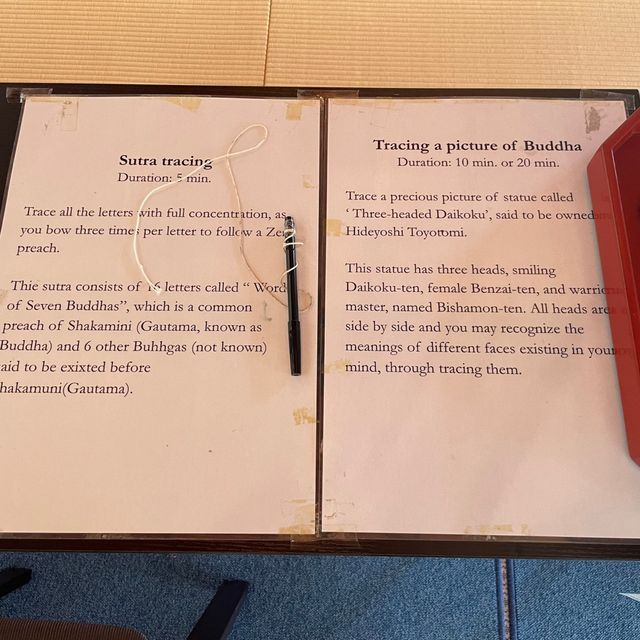 Sutra tracing
Duration: 5 min.
Trace all the letters with full concentration, as
you bow three times per letter to follow a Zen
preach.
Thie sutra consists of 16 letters called “ Word
of Seven Buddhas”, which is a common
preach of Shakamini (Gautama, known as
Buddha) and 6 other Buhhgas (not known)
aid to be exixted before
hakamuni(Gautama).
Tracing a picture of Buddha
Duration: 10 min. or 20 min.
Trace a precious picture of statue called
‘ Three-headed Daikoku’, said to be owned
Hideyoshi Toyotomi.
This statue has three heads, smiling
Daikoku-ten, female Benzai-ten, and warrior
master, named Bishamon-ten. All heads are
side by side and you may recognize the
meanings of different faces existing in your
mind, through tracing them.